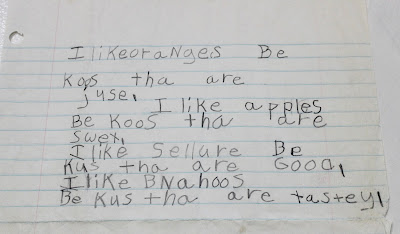 I likeoraNges Be
Koos tha are
juse,
I like apples
Be Koos tha are
swex,
I like Sellure Be
Kus tha are Good,
I like BNahoos
Be Kus tha are tastey,